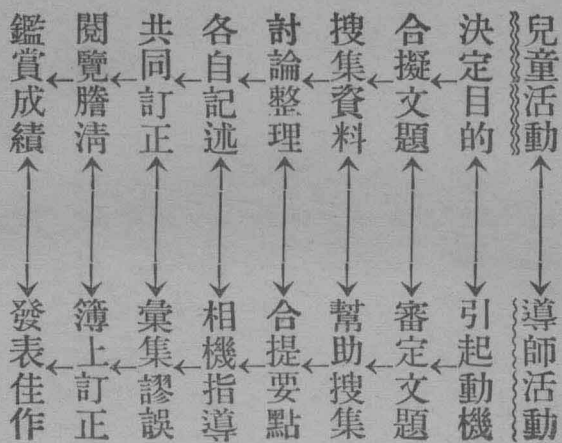 兒童活動
導師活動
決定目的
引起動機
合擬文題
審定文題
搜集資料
幫助搜集
討論整理
合提要點
各自記述
相機指導
共同訂正
彙集謬誤
閱覽謄清
簿上訂正
鑑賞成績
發表佳作